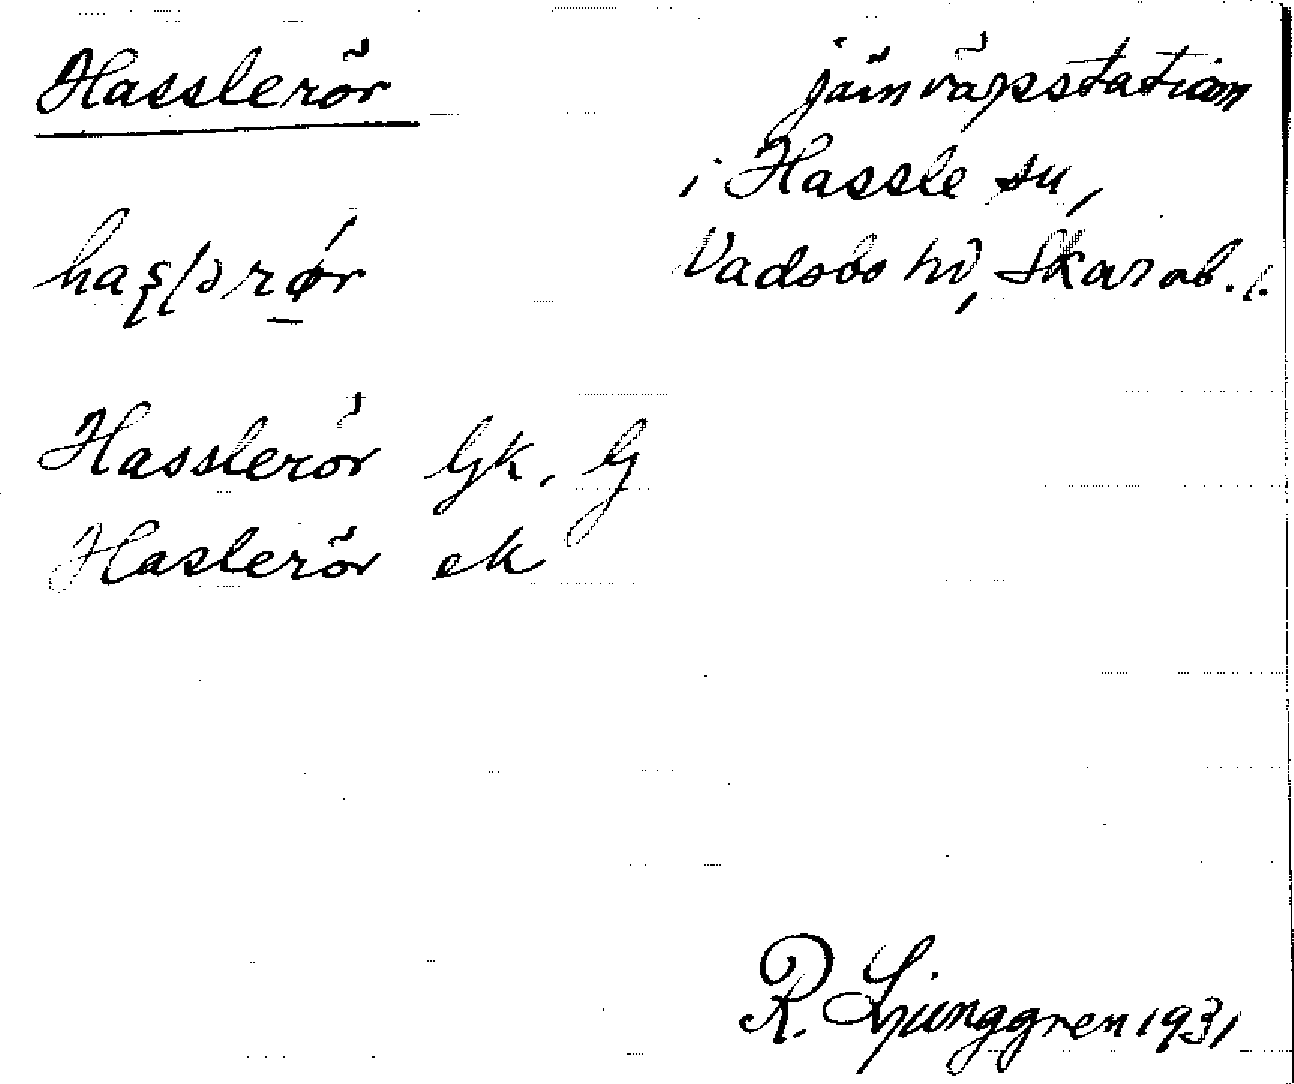 Hasslerör
järnvägsstation
i Hassle sn,
Vadsbo hd, Skarab. l.
Hasslerör Gk. G
Haslerör ek
R. Ljunggren 1931